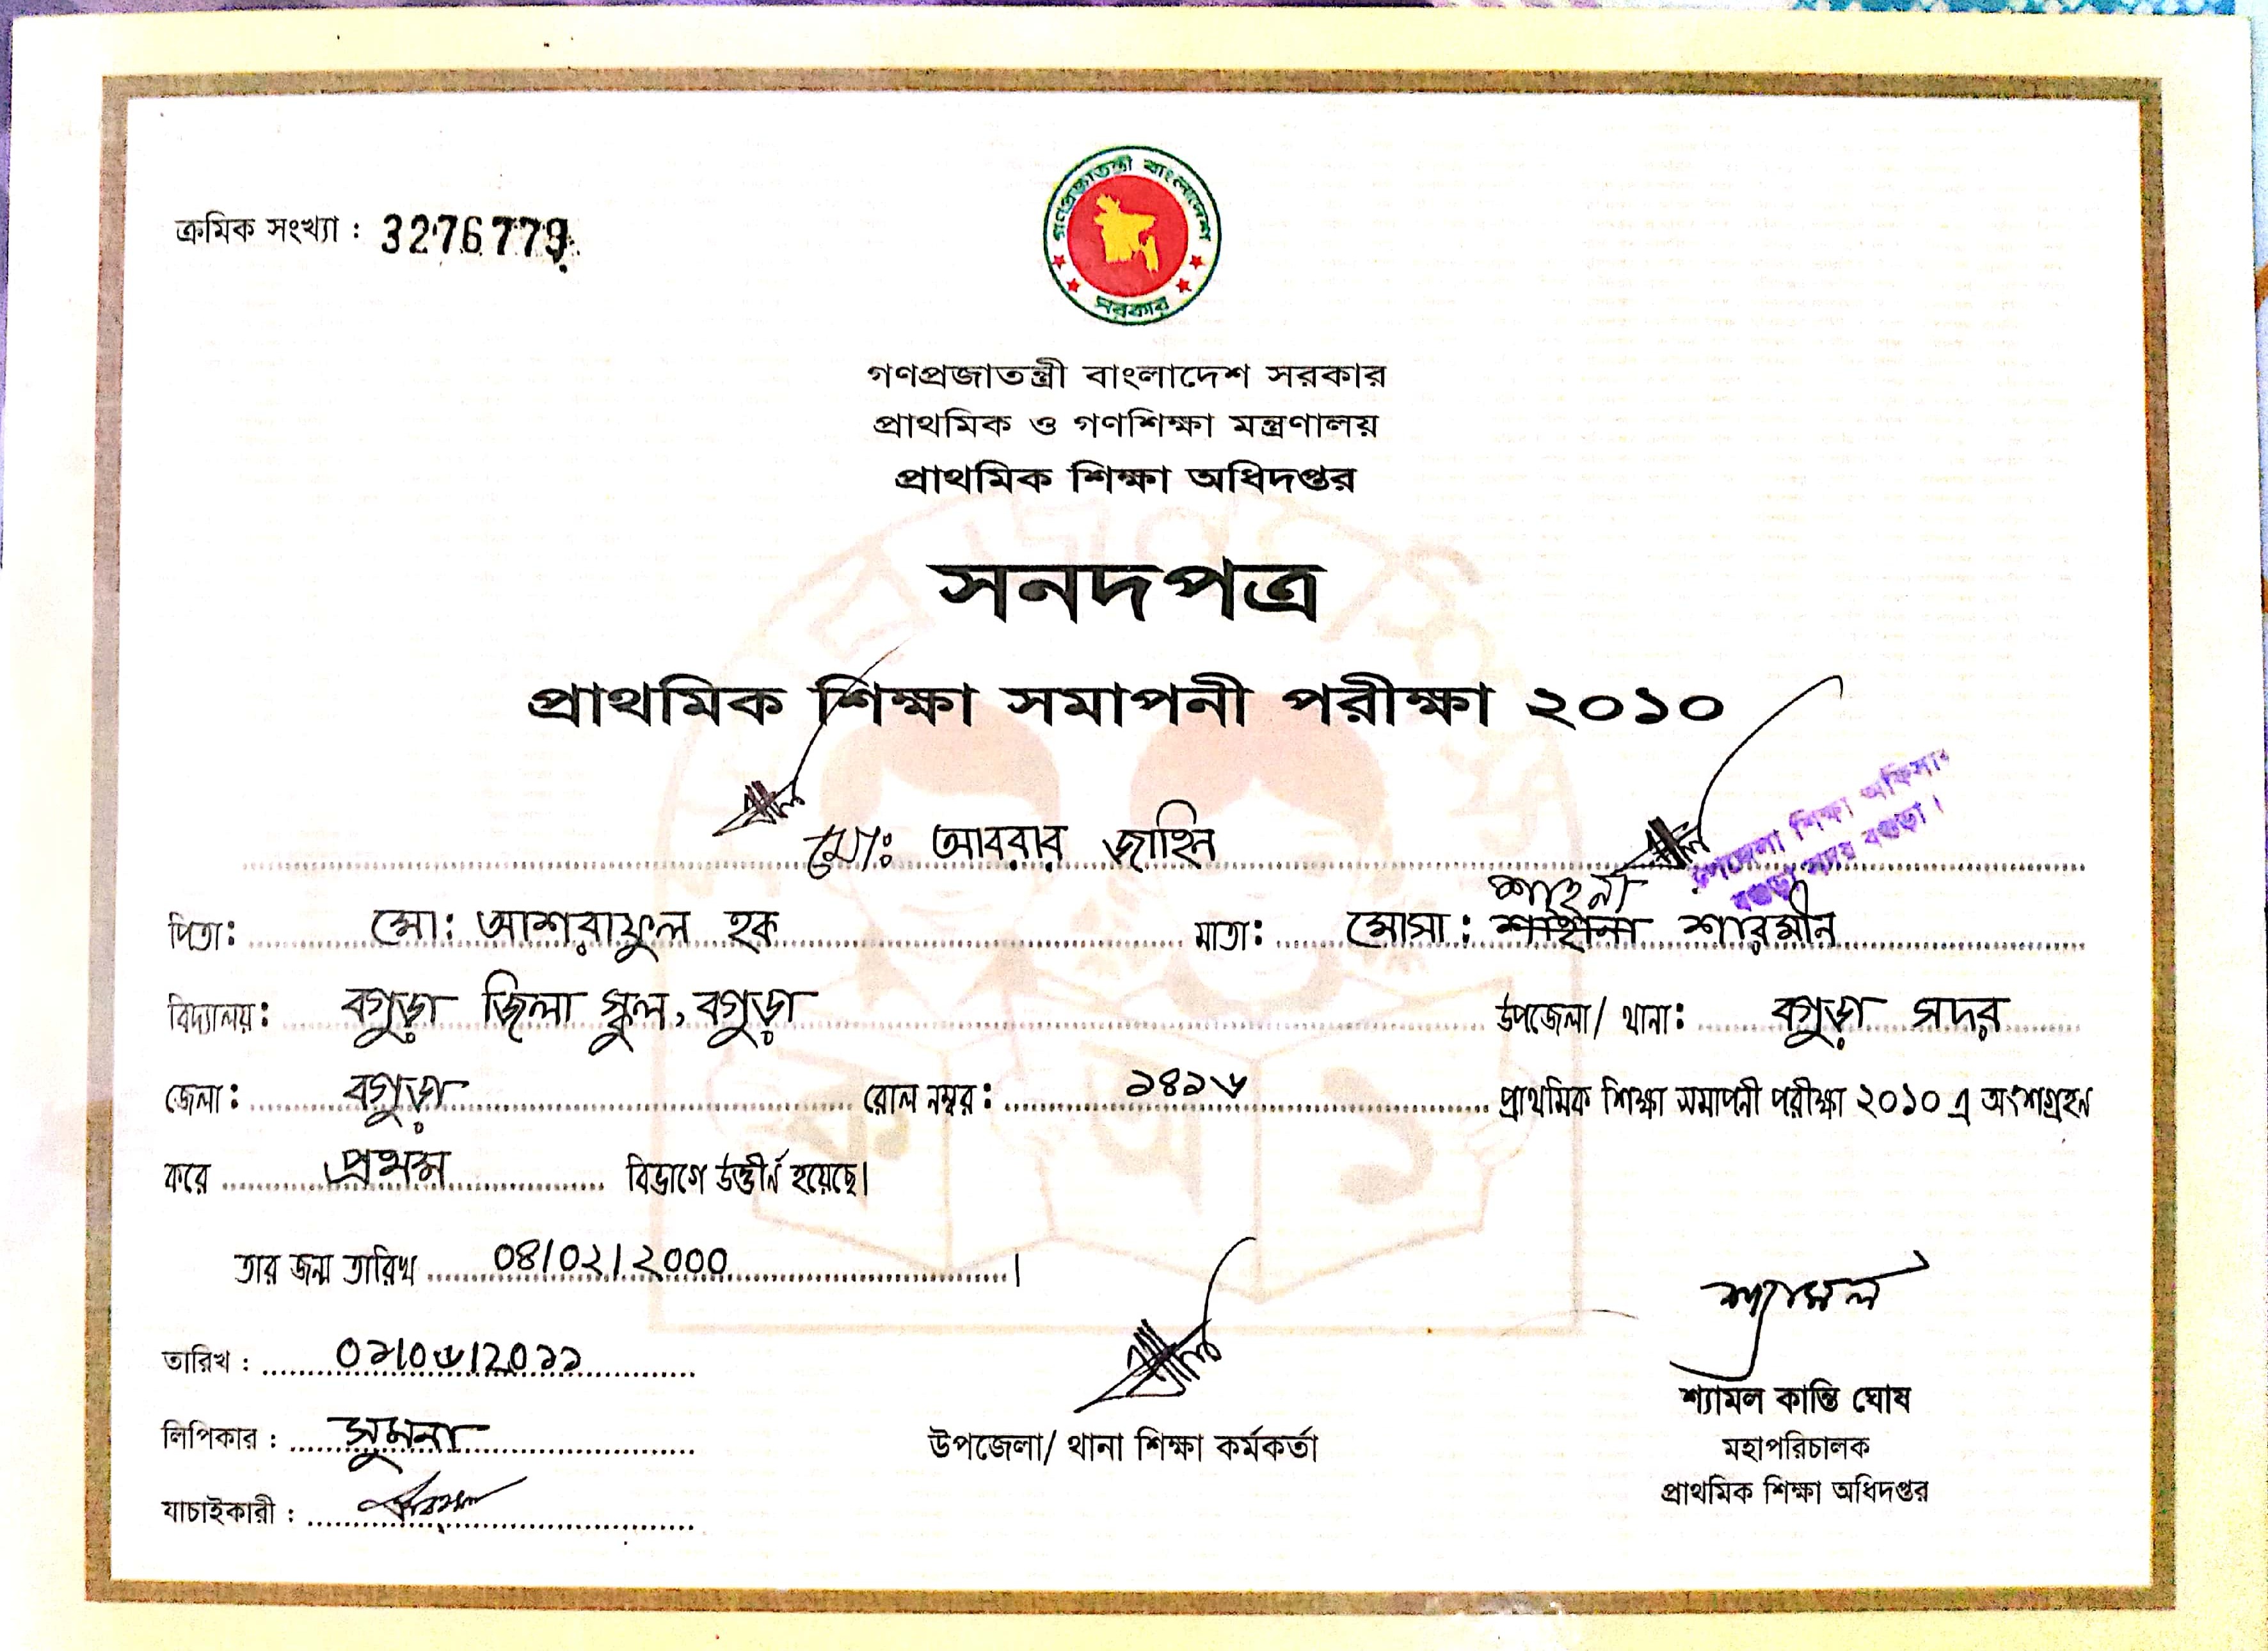 গণপ্রজাতন্ত্রী বাংলাদেশ
সরকার
ক্রমিক সংখ্যা : 3276779
গণপ্রজাতন্ত্রী বাংলাদেশ সরকার
প্রাথমিক ও গণশিক্ষা মন্ত্রণালয়
প্রাথমিক শিক্ষা অধিদপ্তর
সনদপত্র
প্রাথমিক শিক্ষা সমাপনী পরীক্ষা ২০১০
মো: আবরার জাহিন
উপজেলা শিক্ষা অফিসার
বগুড়া সদর বগুড়া।
পিতা: মো: আশরাফুল হক মাতা: মোসা: শাহানা শারমীন
বিদ্যালয়: বগুড়া জিলা স্কুল, বগুড়া উপজেলা/ থানা: বগুড়া সদর
জেলা: বগুড়া রোল নম্বর: ১৪১৬ প্রাথমিক শিক্ষা সমাপনী পরীক্ষা ২০১০ এ অংশগ্রহন
করে প্রথম বিভাগে উত্তীর্ণ হয়েছে।
তার জন্ম তারিখ ০৪/০২/২০০০ ।
তারিখ : ০১/০৬/২০১১
লিপিকার : সুমনা
যাচাইকারী :
উপজেলা/ থানা শিক্ষা কর্মকর্তা
শ্যামল
শ্যামল কান্তি ঘোষ
মহাপরিচালক
প্রাথমিক শিক্ষা অধিদপ্তর
ক অ ১